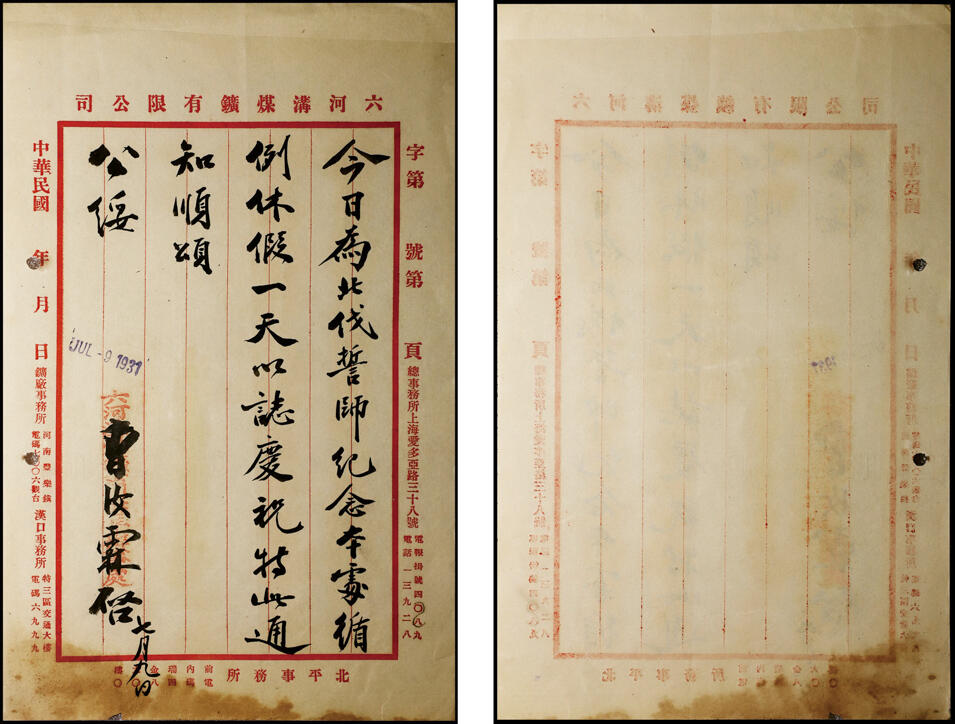 六河溝煤鑛有限公司
字第　號第　頁
總事務所上海愛多亞路三十八號
電報掛號四〇八九
電話一三九二八
今日為北伐誓師紀念本處循
例休假一天以誌慶祝特此通
知順頌
公綏
曹汝霖啓
七月九日
JUL -9 1931
中華民國　年　月　日
鑛廠事務所
河南豐樂鎮
電碼七〇〇六觀台
漢口事務所
特三區交通大樓
電碼六九九九
北平事務所